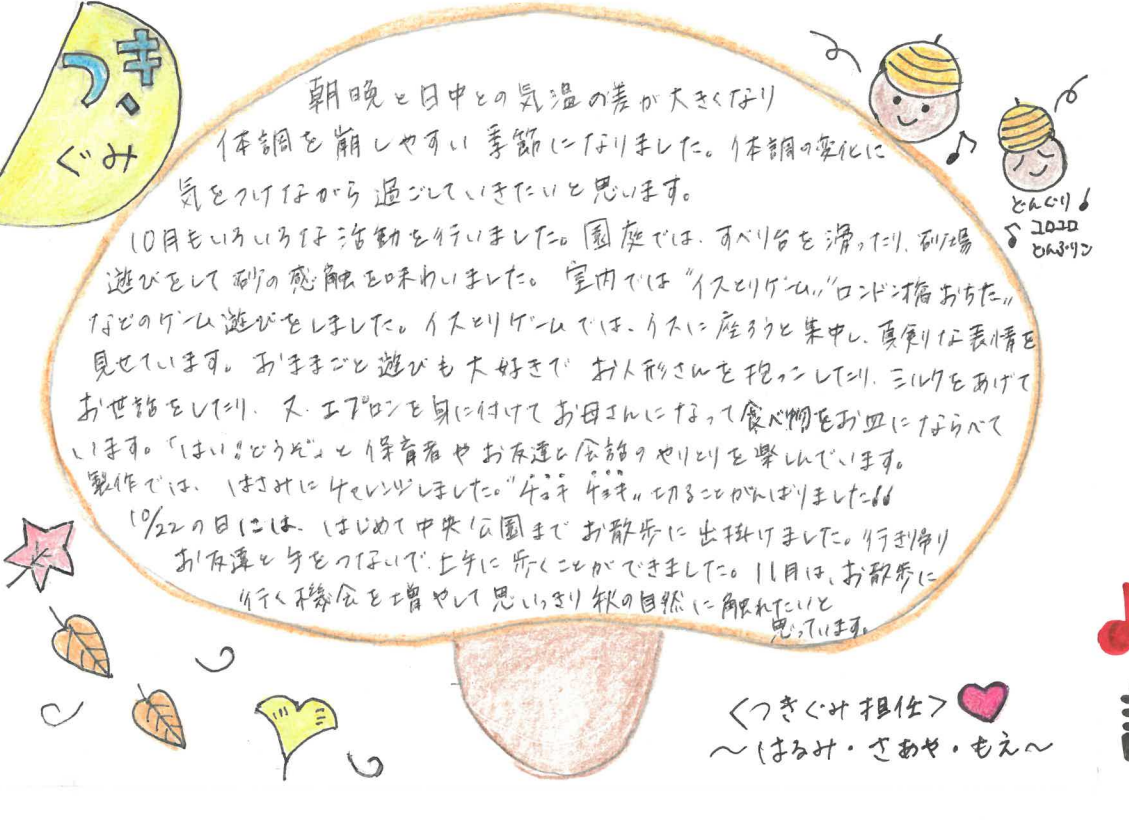 つき
ぐみ
朝晩と日中との気温の差が大きくなり
体調を崩しやすい季節になりました。体調の変化に
気をつけながら過ごしていきたいと思います。
10月もいろいろな活動を行いました。園庭では、すべり台を滑ったり、砂場
遊びをして砂の感触を味わいました。室内では"イスとりゲーム""ロンドン橋おちた"
などのゲーム遊びをしました。イスとりゲームでは、イスに座ろうと集中し、真剣な表情を
見せています。おままごと遊びも大好きでお人形さんを抱っこしたり、ミルクをあげて
お世話をしたり、又、エプロンを身に付けてお母さんになって食べ物をお皿にならべて
います。「はい!!どうぞ」と保育者やお友達と会話のやりとりを楽しんでいます。
製作では、はさみにチャレンジしました。"チョキ チョキ"切ることがんばりました!!
10/22の日には、はじめて中央公園までお散歩に出掛けました。行き帰り
お友達と手をつないで、上手に歩くことができました。11月は、お散歩に
行く機会を増やして思いっきり秋の自然に触れたいと
思っています。
どんぐり♪
♪コロコロ
どんぶりこ
<つきぐみ担任>
~はるみ・さあや・もえ~